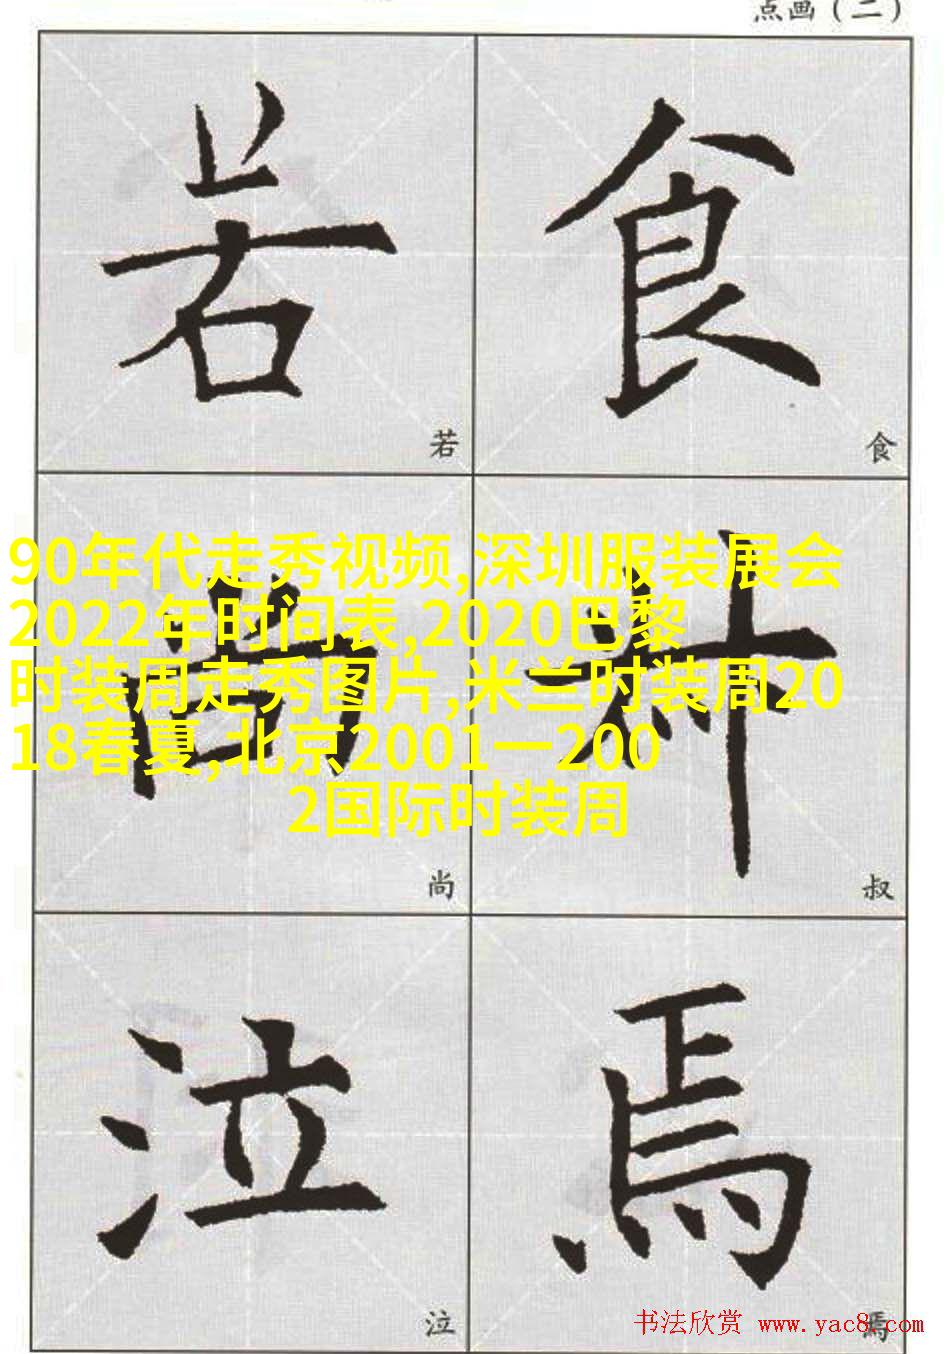 点画（二）
若 食
若 食
90年代走秀视频,深圳服装展会
2022年时间表,2020巴黎
时装周走秀图片,米兰时装周20
18春夏,北京2001一200
2国际时装周
尚 叔
尚 叔
泣 焉
泣 焉
书法欣赏 www.yac8.com